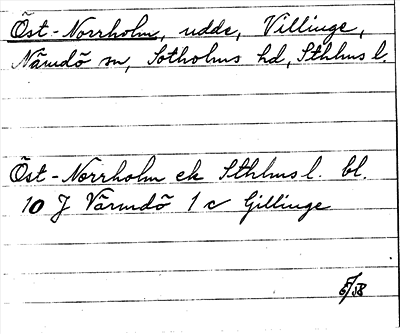 Öst-Norrholm, udde, Villinge,
Nämdö sn, Sotholms hd, Sthlms l.
Öst-Norrholm ek Sthlms l. bl.
10 J Värmdö 1 c Gillinge
/58